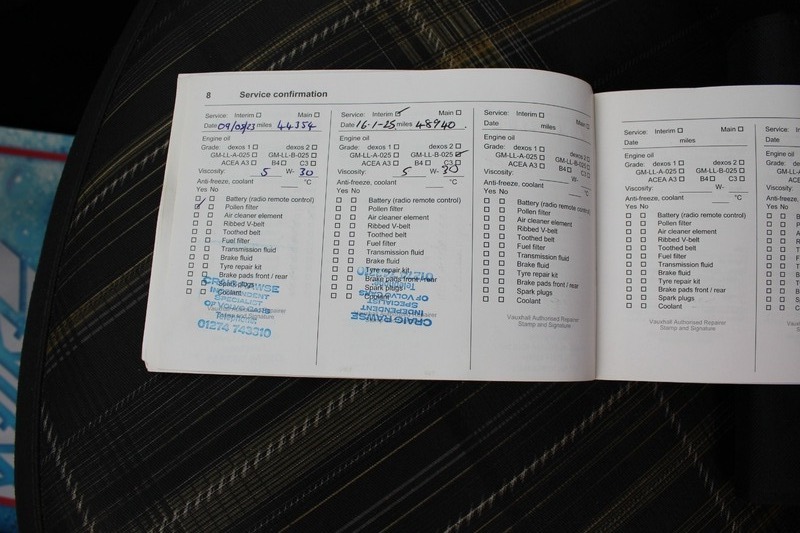 8 Service confirmation
Service: Interim ☐ Main ☐
Date 09/03/23 miles 44354
Engine oil
Grade: dexos 1 ☐ dexos 2 ☐
GM-LL-A-025 ☐ GM-LL-B-025 ☐
ACEA A3 ☐ B4 ☐ C3 ☐
Viscosity: 5 W- 30
Anti-freeze, coolant ____ °C
Yes No
Battery (radio remote control)
Pollen filter
Air cleaner element
Ribbed V-belt
Toothed belt
Fuel filter
Transmission fluid
Brake fluid
Tyre repair kit
Brake pads front / rear
Spark plugs
Coolant
CRAIG RAWSE
INDEPENDENT
SPECIALIST
OF VOLVO CARS
01274 743310
Stamp and Signature
Service: Interim ☑ Main ☐
Date 16-1-25 miles 48940.
Engine oil
Grade: dexos 1 ☐ dexos 2 ☐
GM-LL-A-025 ☐ GM-LL-B-025 ☑
ACEA A3 ☐ B4 ☐ C3 ☐
Viscosity: 5 W- 30
Anti-freeze, coolant ____ °C
Yes No
Battery (radio remote control)
Pollen filter
Air cleaner element
Ribbed V-belt
Toothed belt
Fuel filter
Transmission fluid
Brake fluid
Tyre repair kit
Brake pads front / rear
Spark plugs
Coolant
CRAIG RAWSE
INDEPENDENT
SPECIALIST
OF VOLVO CARS
Service: Interim ☐ Main ☐
Date miles
Engine oil
Grade: dexos 1 ☐ dexos 2 ☐
GM-LL-A-025 ☐ GM-LL-B-025 ☐
ACEA A3 ☐ B4 ☐ C3 ☐
Viscosity: W-
Anti-freeze, coolant ____ °C
Yes No
Battery (radio remote control)
Pollen filter
Air cleaner element
Ribbed V-belt
Toothed belt
Fuel filter
Transmission fluid
Brake fluid
Tyre repair kit
Brake pads front / rear
Spark plugs
Coolant
Vauxhall Authorised Repairer
Stamp and Signature
Service: Interim ☐ Main ☐
Date miles
Engine oil
Grade: dexos 1 ☐ dexos 2 ☐
GM-LL-A-025 ☐ GM-LL-B-025 ☐
ACEA A3 ☐ B4 ☐ C3 ☐
Viscosity: W-
Anti-freeze, coolant ____ °C
Yes No
Battery (radio remote control)
Pollen filter
Air cleaner element
Ribbed V-belt
Toothed belt
Fuel filter
Transmission fluid
Brake fluid
Tyre repair kit
Brake pads front / rear
Spark plugs
Coolant
Vauxhall Authorised Repairer
Stamp and Signature
Service:
Date
Engine oil
Grade:
Viscosity:
Yes No